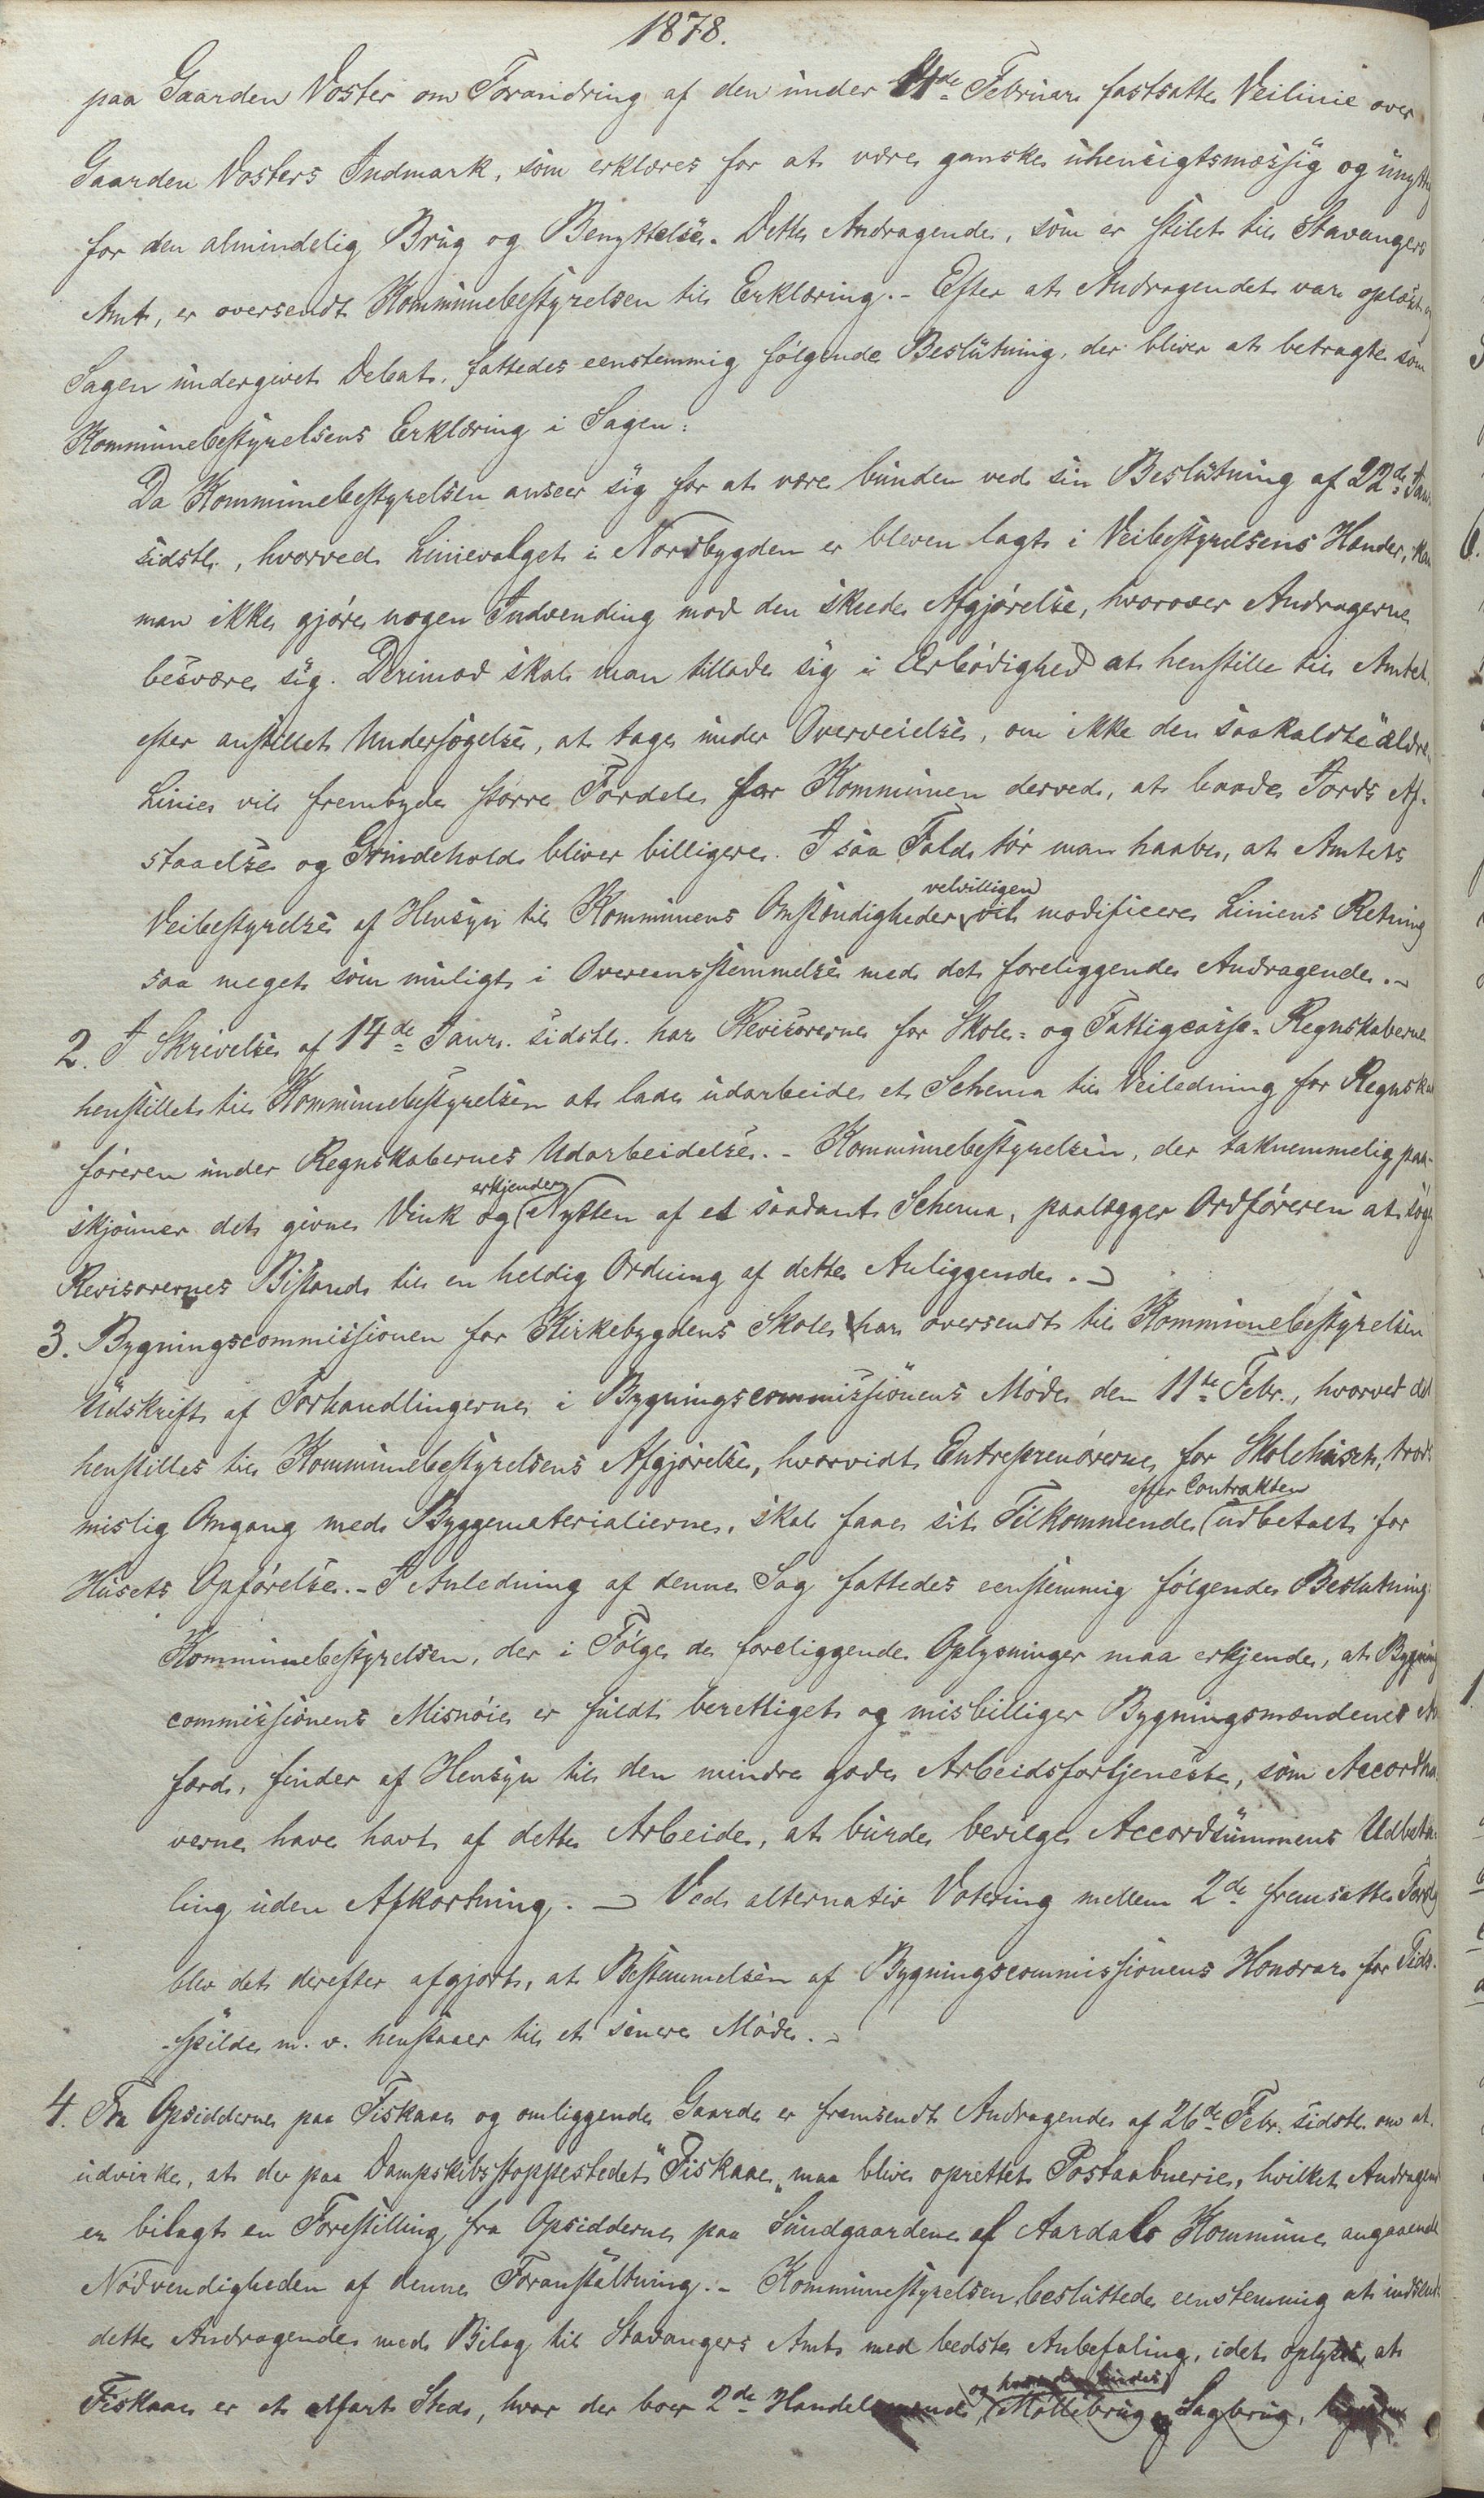 1878.
paa Gaarden Voster om Forandring af den under 4de Februar fastsatte Veilinie over
Gaarden Vosters Indmark, som erklæres for at være ganske uhensigtsmæssig og unyttig
for den almindelig Brug og Benyttelse. Dette Andragende, som er stilet til Stavangers
Amt, er oversendt Kommunebestyrelsen til Erklæring. - Efter at Andragendet var oplæst og
Sagen undergivet Debat, fattedes eenstemmig følgende Beslutning, der bliver at betragte som
Kommunebestyrelsens Erklæring i Sagen:
Da Kommunebestyrelsen anseer sig for at være bunden ved sin Beslutning af 22de Janr.
sidstl., hvorved Linievalget i Nordbygden er bleven lagt i Veibestyrelsens Hænder, kan
man ikke gjøre nogen Indvending mod den skeede Afgjørelse, hvorover Andragerne
besvære sig. Derimod skal man tillade sig i Ærbødighed at henstille til Amtet
efter anstillet Undersøgelse, at tage under Overveielse, om ikke den saakaldte ældre
Linie vil frembyde større Fordele for Kommunen derved, at baade Jords Af-
staaelse og Grindehold bliver billigere. I saa Fald tør man haabe, at Amtets
Veibestyrelse af Hensyn til Kommunens Omstændigheder velvilligen vil modificere Liniens Retning
saa meget som muligt i Overeensstemmelse med det foreliggende Andragende. -
2. I Skrivelse af 14de Janr. sidstl. har Revisorerne for Skole- og Fattigcasse-Regnskaberne
henstillet til Kommunebestyrelsen at lade udarbeide et Schema til Veiledning for Regnskabs
føreren under Regnskabernes Udarbeidelse. - Kommunebestyrelsen, der taknemmelig paa-
skjønner det givne Vink og erkjender Nytten af et saadant Schema, paalægger Ordføreren at søge
Revisorernes Bistand til en heldig Ordning af dette Anliggende. -
3. Bygningscommissionen for Kirkebygdens Skole har oversendt til Kommunebestyrelsen
Udskrift af Forhandlingerne i Bygningscommissionens Møde den 11te Febr., hvorved det
henstilles til Kommunebestyrelsens Afgjørelse, hvorvidt Entreprenørerne for Skolehuset, trods
mislig Omgang med Byggematerialierne, skal faae sit Tilkommende efter Contrakten udbetalt for
Husets Opførelse. - I Anledning af denne Sag fattedes eenstemmig følgende Beslutning:
Kommunebestyrelsen, der i Følge de foreliggende Oplysninger maa erkjende, at Bygnings
commissionens Misnøie er fuldt berettiget og misbilliger Bygningsmændenes An
færd, finder af Hensyn til den mindre gode Arbeidsfortjeneste, som Accordha
verne have havt af dette Arbeide, at burde bevilge Accordsummens Udbeta-
ling uden Afkortning. - Ved alternativ Votering mellem 2de fremsatte Forslag
blev det derefter afgjort, at Bestemmelsen af Bygningscommissionens Honorar for Tids-
spilde m. v. henstaaer til et senere Møde. -
4. Fra Opsidderne paa Fiskaae og omliggende Gaarde er fremsendt Andragende af 26de Febr. sidstl. om at
udvirke, at der paa Dampskibsstoppestedet "Fiskaae" maa blive oprettet Postaabnerie, hvilket Andragende
er bilagt en Forestilling fra Opsidderne paa Sundgaardene af Aardals Kommune angaaende
Nødvendigheden af denne Foranstaltning. - Kommunestyrelsen besluttede eenstemmig at indsende
dette Andragende med Bilag til Stavangers Amt med bedste Anbefaling, idet oplyses, at
Fiskaae er et alfart Sted, hvor der boer 2de Handelsmænd og hvor der findes Møllebrug og Sagbrug,